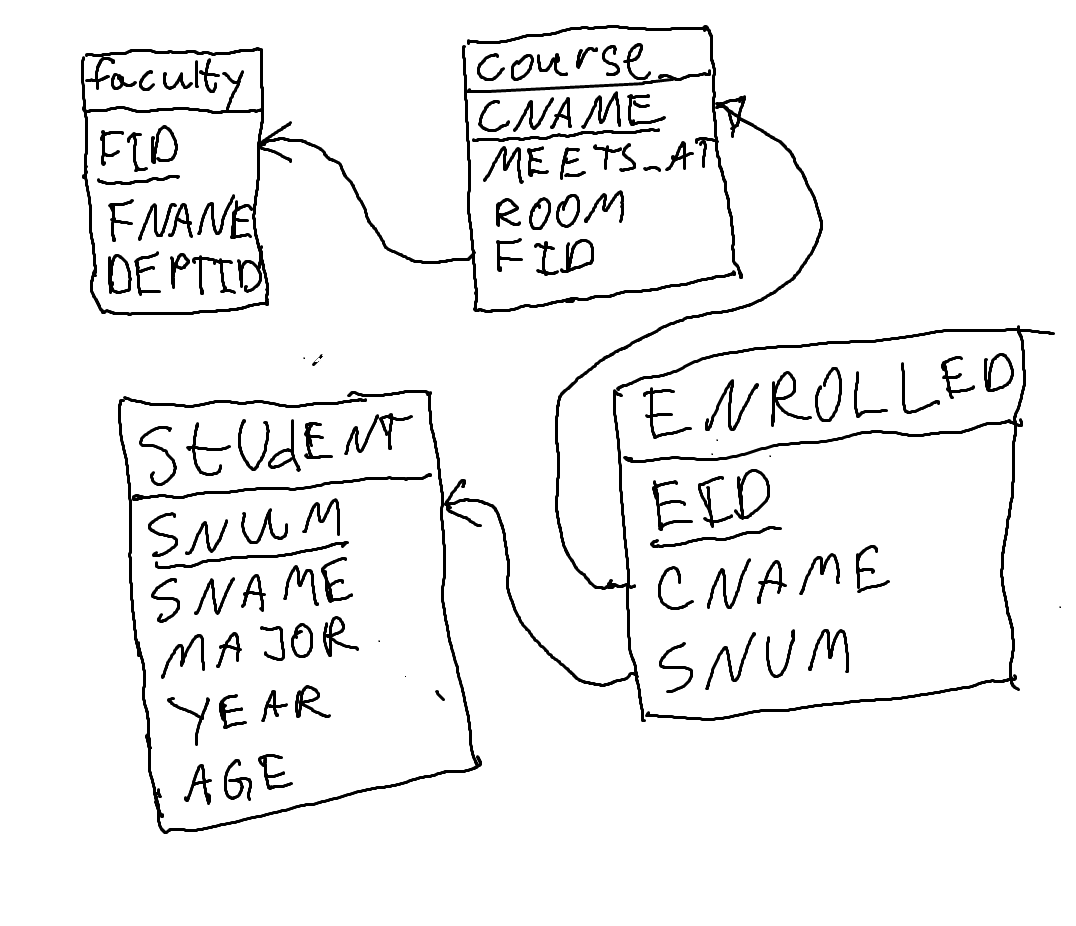 faculty
FID
FNANE
DEPTID
course
CNAME
MEETS_AT
ROOM
FID
StUdENT
SNUM
SNAME
MAJOR
YEAR
AGE
ENROLLED
EID
CNAME
SNUM